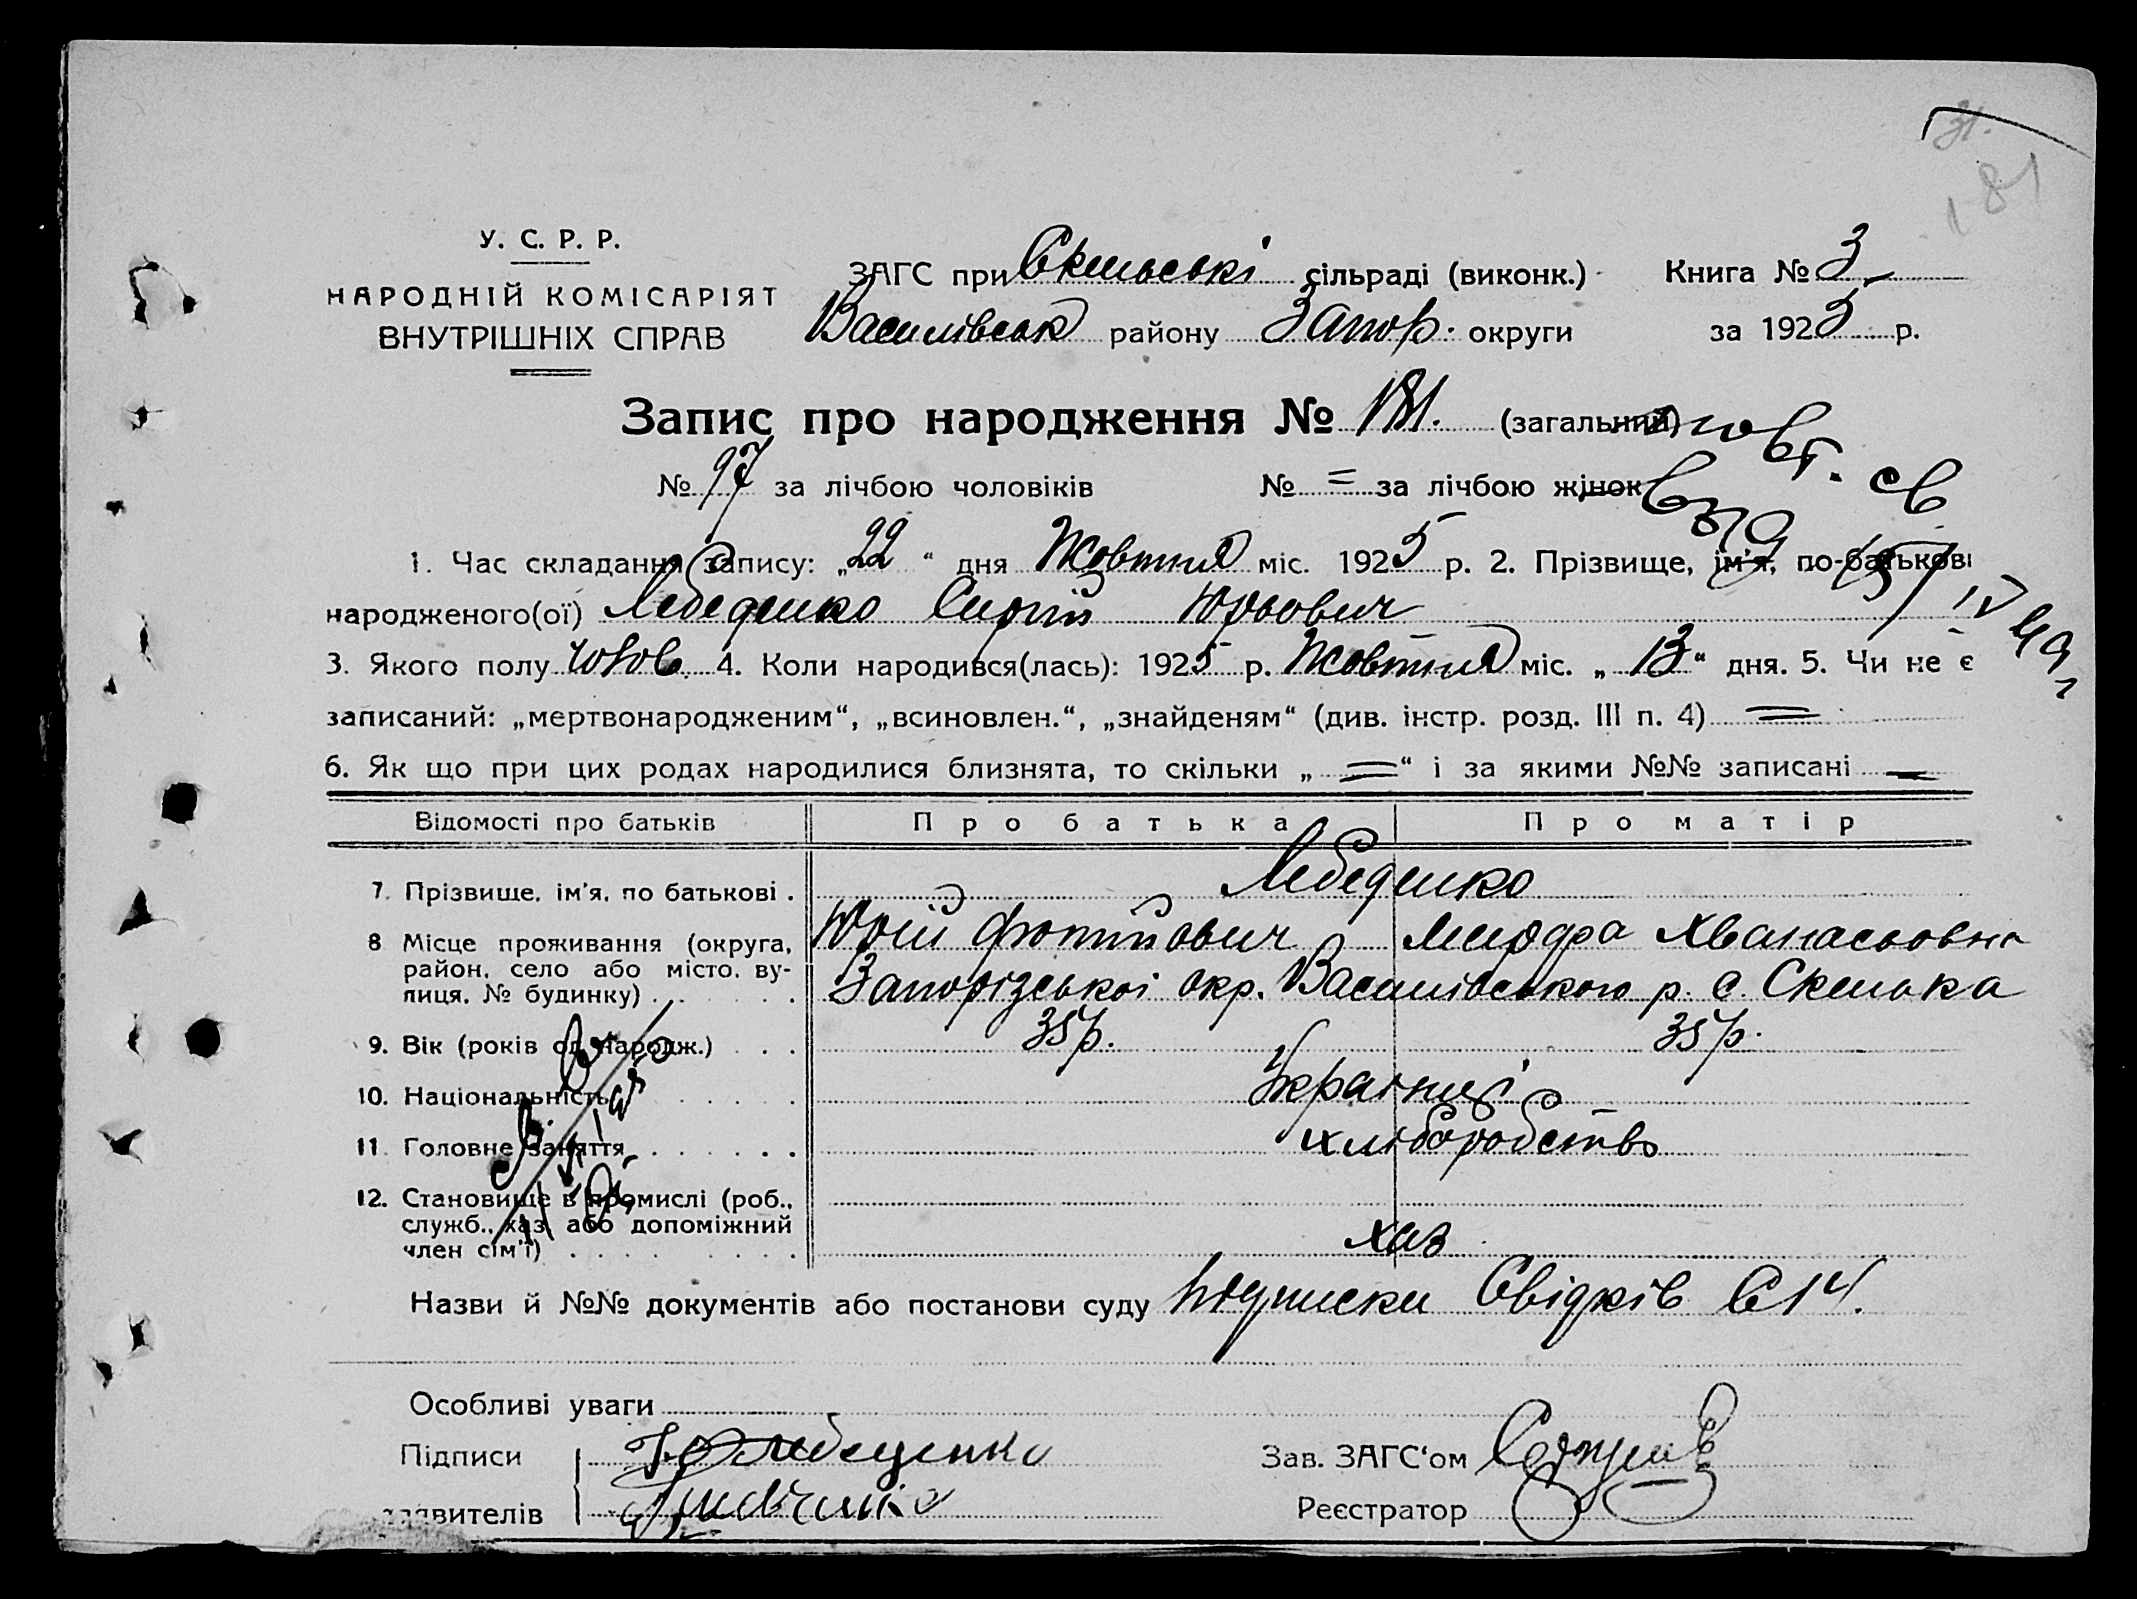 31.
181
У. С. Р. Р.
НАРОДНІЙ КОМІСАРІЯТ
ВНУТРІШНІХ СПРАВ
ЗАГС при Скельські сільраді (виконк.) Книга № 3
Василівськ району Запор. округи за 1925 р.
Запис про народження № 181. (загальний)
№ 97 за лічбою чоловіків № = за лічбою жінок
1. Час складання запису: „22“ дня Жовтня міс. 1925 р. 2. Прізвище, ім'я, по-батькові
народженого(ої) Лебеденко Сиргій Юрьович
3. Якого полу чолов. 4. Коли народився(лась): 1925 р. Жовтня міс. „13“ дня. 5. Чи не є
записаний: „мертвонародженим“, „всиновлен.“, „знайденям“ (див. інстр. розд. III п. 4) =
6. Як що при цих родах народилися близнята, то скільки „=“ і за якими №№ записані =
Відомості про батьків Про батька Про матір
7. Прізвище, ім'я, по батькові . Лебеденко
Юрій Фотійович Хванасьовна
8 Місце проживання (округа,
район, село або місто, ву-
лиця, № будинку) . . . . . Запорізської окр. Василівського р. с. Скелька
9. Вік (років од народж.) . . . 35 р. 35 р.
10. Національність . . . . . Українці
11. Головне заняття . . . . . . хліборобство
12. Становище в промислі (роб.,
служб., хаз. або допоміжний
член сім'ї) . . . . . . . . хаз
Назви й №№ документів або постанови суду Підписки Свідків С 14.
Особливі уваги
Підписи Лебеденко Зав. ЗАГС'ом
заявителів Реєстратор